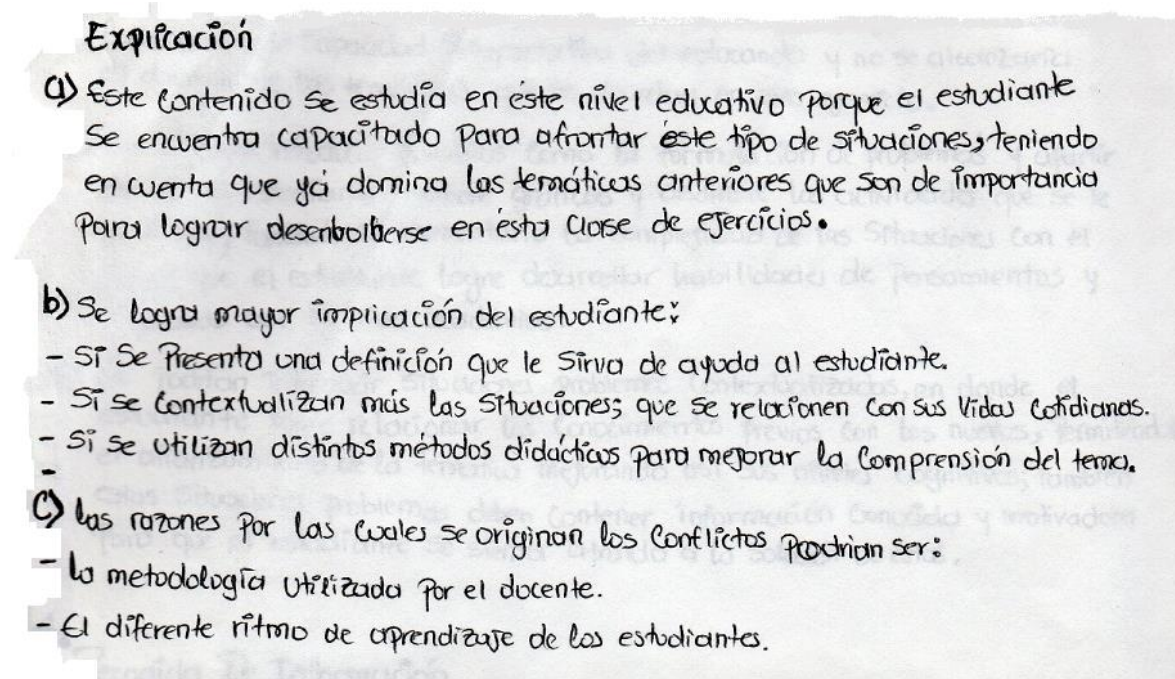 Explicación
a) Este contenido se estudia en este nivel educativo porque el estudiante
se encuentra capacitado para afrontar éste tipo de situaciones, teniendo
en cuenta que yá domina las temáticas anteriores que son de importancia
para lograr desenbolberse en ésta clase de ejercicios.
b) Se logra mayor implicación del estudiante:
- Si se presenta una definición que le sirva de ayuda al estudiante.
- Si se contextualizan más las situaciones; que se relacionen con sus vidas cotidianas.
- Si se utilizan distintos métodos didácticos para mejorar la comprensión del tema.
-
c) las razones por las cuales se originan los conflictos podrian ser:
- la metodología utilizada por el docente.
- El diferente ritmo de aprendizaje de los estudiantes.